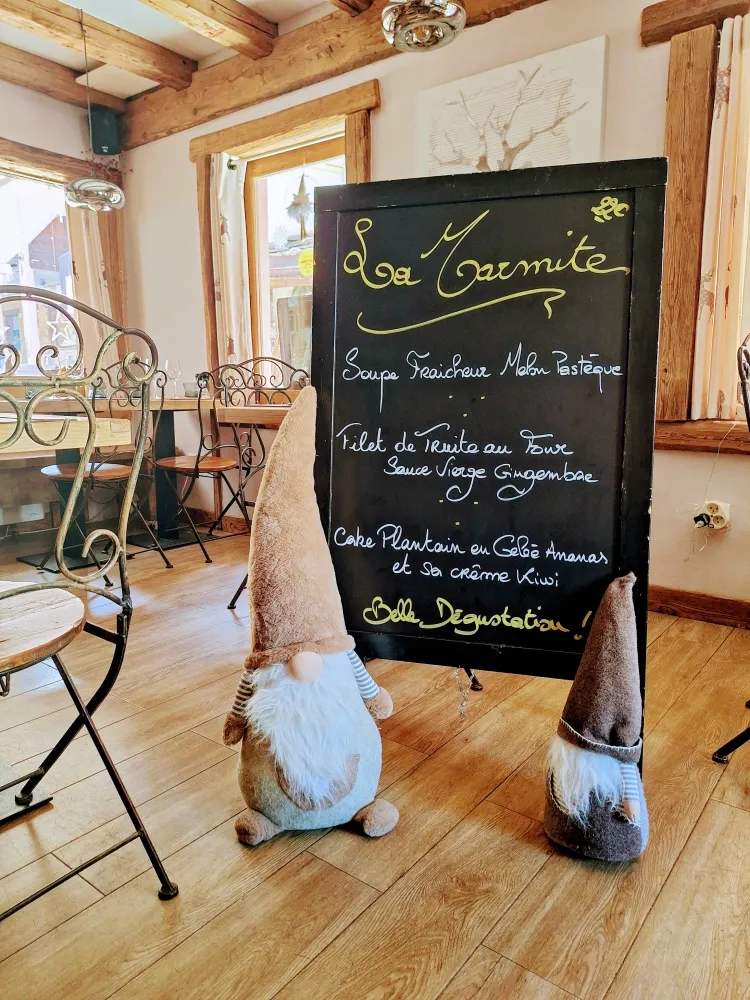 La Marmite
Soupe Fraicheur Melon Pastèque
Filet de Truite au Four
Sauce Vierge Gingembre
Cake Plantain en Gelée Ananas
et sa crème Kiwi
Belle Dégustation !